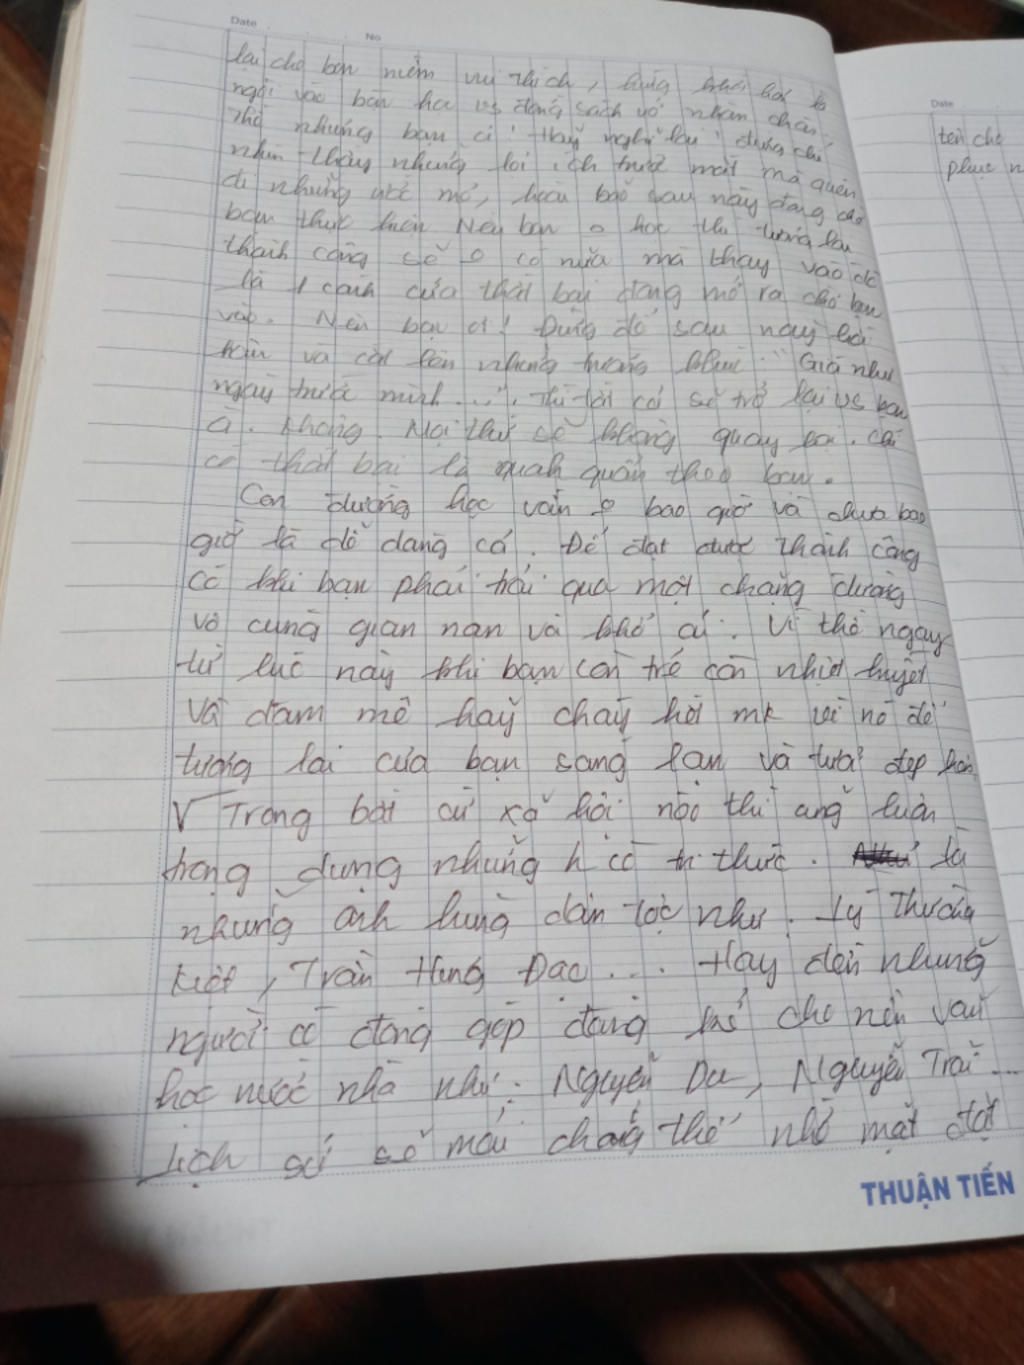 Date No
lại cho bạn niềm vui thích, hứng khởi hơn là
ngồi vào bàn học vs đống sách vở nhàm chán.
Thế nhưng bạn ơi! Hãy nghĩ lại, đừng chỉ
nhìn thấy những lợi ích trước mắt mà quên
đi những ước mơ, hoài bão sau này đang chờ
bạn thực hiện. Nếu bạn o học thì tương lai
thành công sẽ o có nữa mà thay vào đó
là 1 cánh cửa thất bại đang mở ra chờ bạn
vào. Nên bạn ơi! Đừng để sau này hối
hận và cất lên những tiếng "Giá như
ngày trước mình...". Thì tất cả sẽ trở lại vs bạn
à. Không. Mọi thứ sẽ không quay lại. Chỉ
có thất bại là quanh quẩn theo bạn.
Con đường học vấn o bao giờ và chưa bao
giờ là dễ dàng cả. Để đạt được thành công
có khi bạn phải trải qua một chặng đường
vô cùng gian nan và khổ ải. Vì thế ngay
từ lúc này khi bạn còn trẻ còn nhiệt huyết
và đam mê hãy cháy hết mk với nó để
tương lai của bạn sáng lạn và tươi đẹp hơn
√ Trong bất cứ xã hội nào thì cũng luôn
trọng dụng những h có tri thức. là
những anh hùng dân tộc như: Lý Thường
Kiệt, Trần Hưng Đạo.... Hay đến những
người có đóng góp đáng kể cho nền văn
học nước nhà như: Nguyễn Du, Nguyễn Trãi...
Lịch sử sẽ mãi chẳng thể nhớ mặt đặt
THUẬN TIẾN
Date
tên cho
phục n